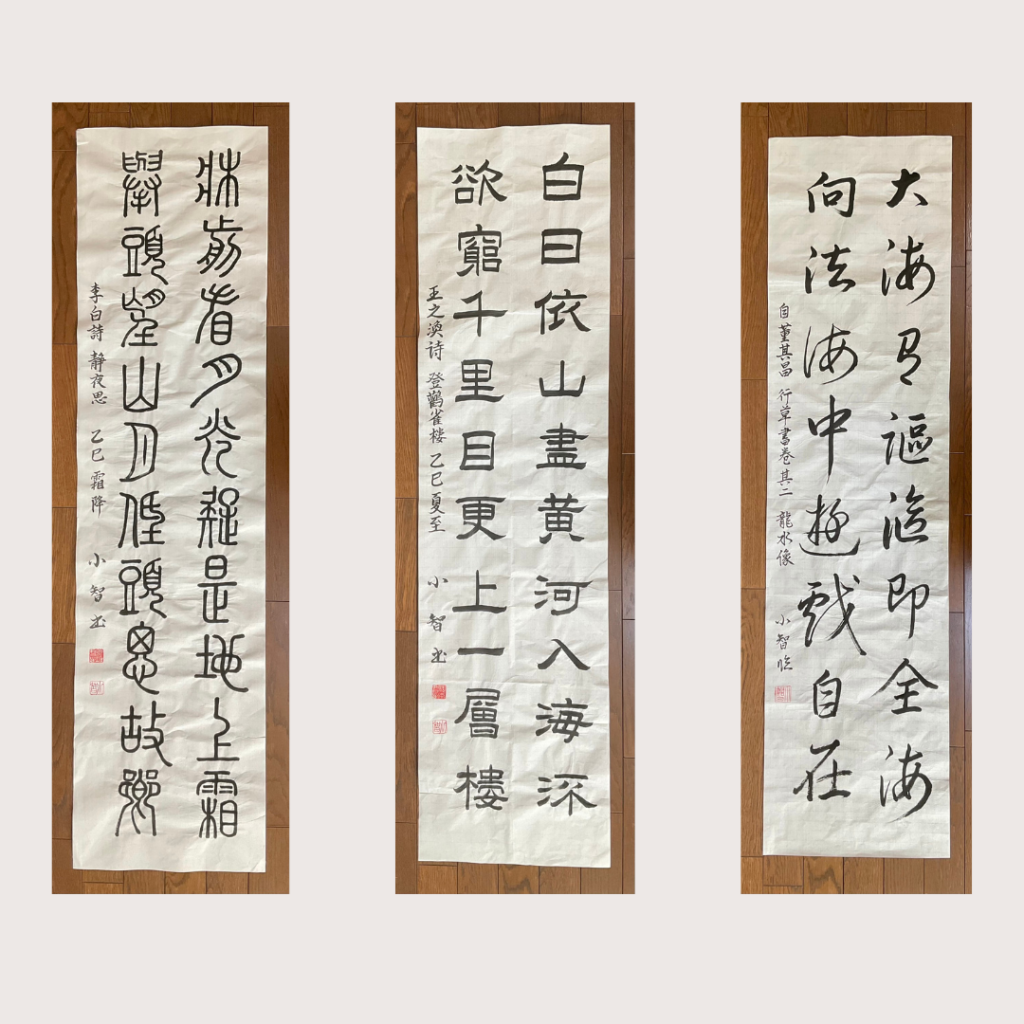 牀前看月光疑是地上霜
舉頭望山月低頭思故鄉
李白詩 靜夜思 乙巳 霜降 小智书
白日依山盡黄河入海流
欲窮千里目更上一層樓
王之渙诗 登鸛雀楼 乙巳夏至 小智书
大海有漚漚即全海
向法海中遊戲自在
自董其昌 行草書卷其二 龍水像 小智临